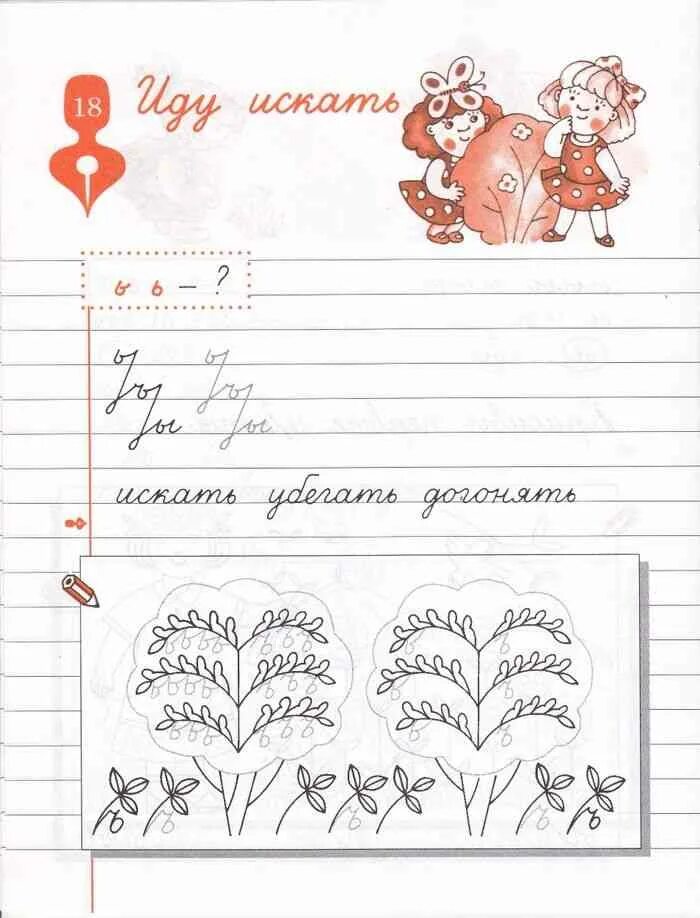 18
Иду искать
ъ ь – ?
ы ы
ъ ъ
ы ы
искать убегать догонять